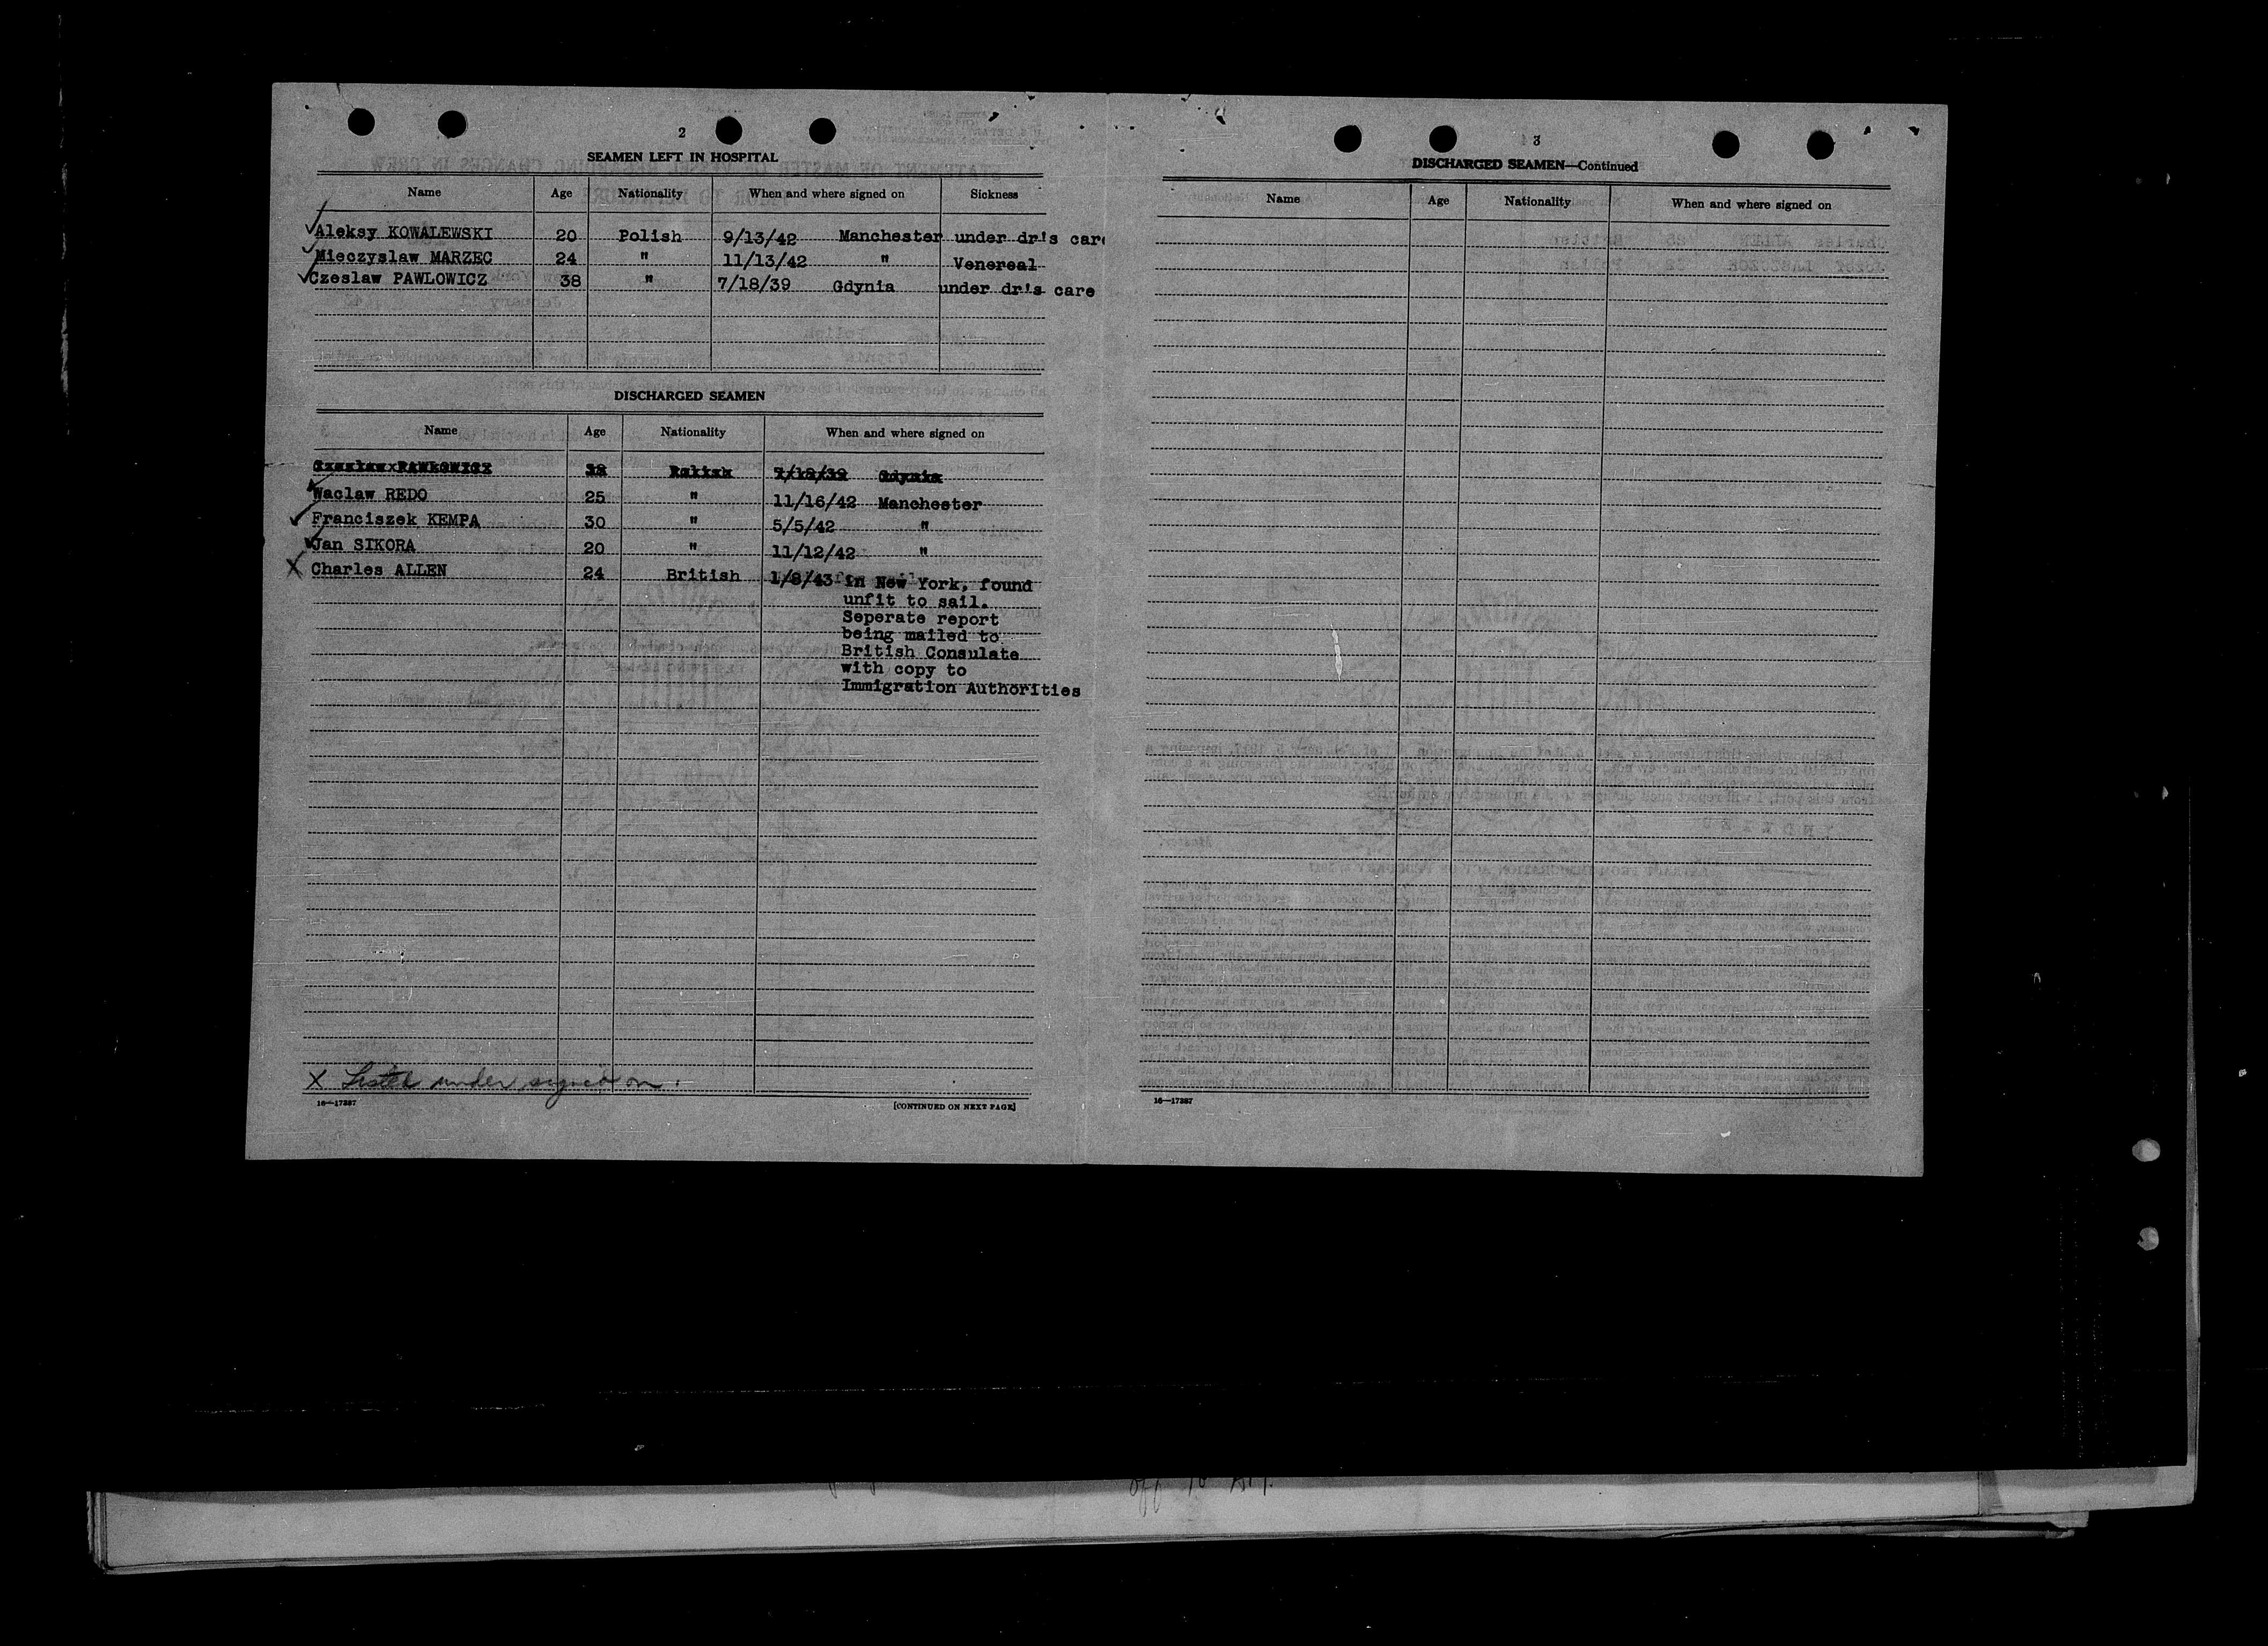 2
SEAMEN LEFT IN HOSPITAL
Name Age Nationality When and where signed on Sickness
Aleksy KOWALEWSKI 20 Polish 9/13/42 Manchester under dr's care
Mieczyslaw MARZEC 24 " 11/13/42 " Venereal
Czeslaw PAWLOWICZ 38 " 7/18/39 Gdynia under dr's care
DISCHARGED SEAMEN
Name Age Nationality When and where signed on
Czeslaw PAWLOWICZ 38 Polish 7/18/39 Gdynia
Waclaw REDO 25 " 11/16/42 Manchester
Franciszek KEMPA 30 " 5/5/42 "
Jan SIKORA 20 " 11/12/42 "
X Charles ALLEN 24 British 1/8/43 in New York, found
unfit to sail.
Seperate report
being mailed to
British Consulate
with copy to
Immigration Authorities
X Listed under signed on.
16—17387 [CONTINUED ON NEXT PAGE]
3
DISCHARGED SEAMEN—Continued
Name Age Nationality When and where signed on
16—17387
off to